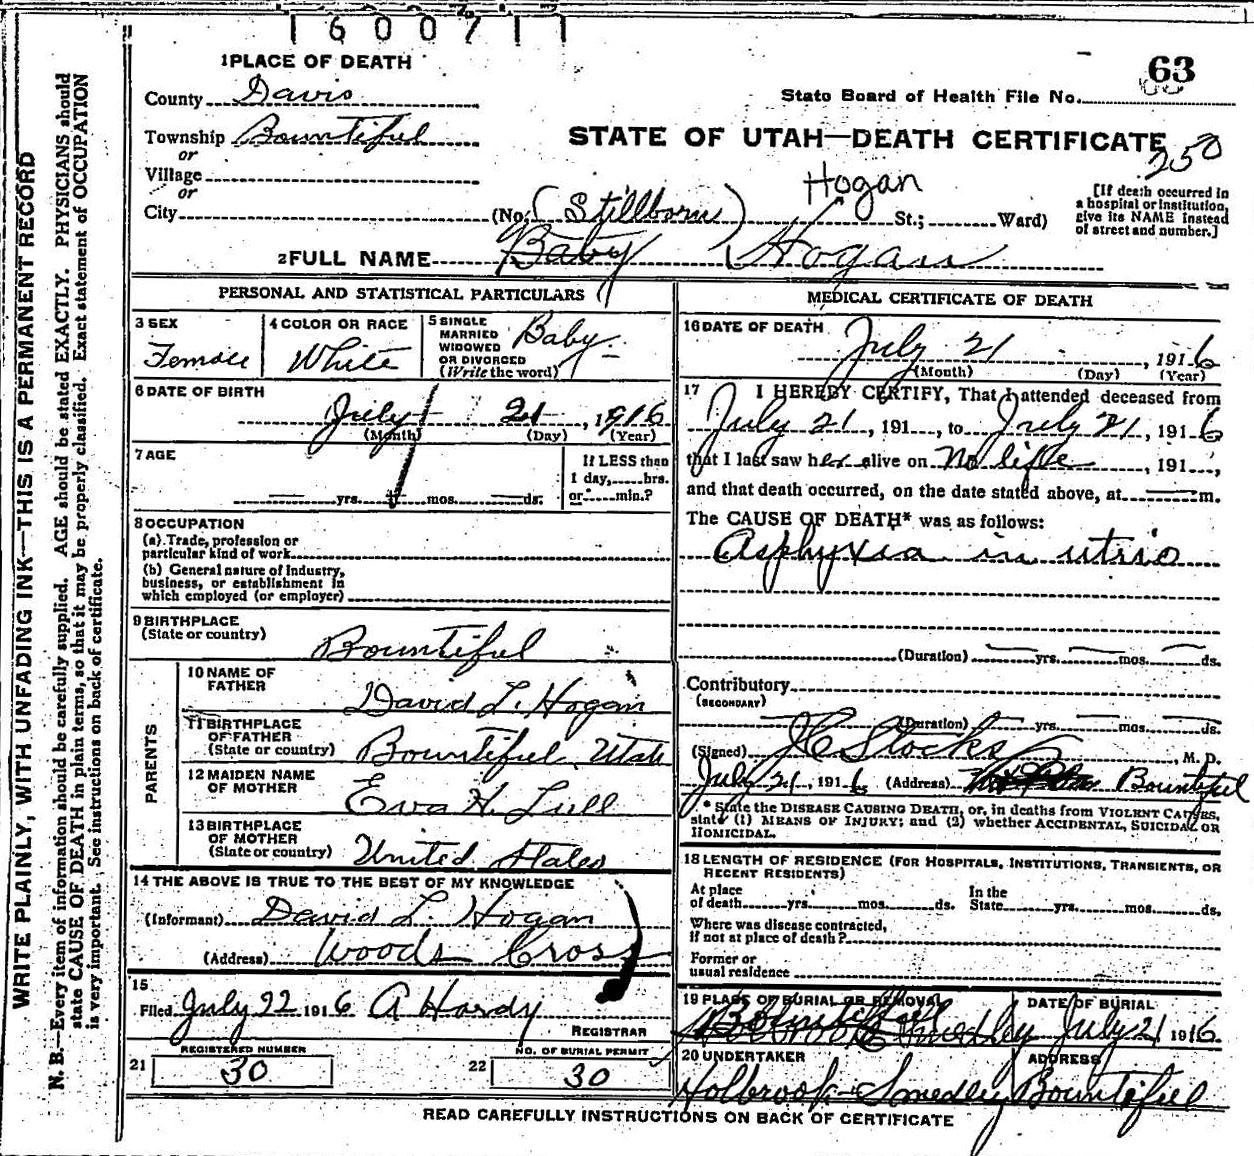 1600717
63
1 PLACE OF DEATH
County Davis
State Board of Health File No.
Township Bountiful
STATE OF UTAH—DEATH CERTIFICATE
250
or
Village
or
City
(No. (Stillborn) St.; Ward)
Hogan
[If death occurred in a hospital or institution, give its NAME instead of street and number.]
2 FULL NAME Baby Hogan
PERSONAL AND STATISTICAL PARTICULARS
3 SEX
Female
4 COLOR OR RACE
White
5 SINGLE
MARRIED
WIDOWED
OR DIVORCED
(Write the word)
Baby
6 DATE OF BIRTH
July 21, 1916
(Month) (Day) (Year)
7 AGE
yrs. mos. ds.
If LESS than
1 day, hrs.
or min.?
8 OCCUPATION
(a) Trade, profession or
particular kind of work
(b) General nature of industry,
business, or establishment in
which employed (or employer)
9 BIRTHPLACE
(State or country)
Bountiful
PARENTS
10 NAME OF
FATHER
David L. Hogan
11 BIRTHPLACE
OF FATHER
(State or country)
Bountiful, Utah
12 MAIDEN NAME
OF MOTHER
Eva H. Lull
13 BIRTHPLACE
OF MOTHER
(State or country)
United States
14 THE ABOVE IS TRUE TO THE BEST OF MY KNOWLEDGE
(Informant) David L. Hogan
(Address) Woods Cross
15
Filed July 22 1916 A Hardy
REGISTRAR
21
REGISTERED NUMBER
30
22
NO. OF BURIAL PERMIT
30
MEDICAL CERTIFICATE OF DEATH
16 DATE OF DEATH
July 21, 1916
(Month) (Day) (Year)
17 I HEREBY CERTIFY, That I attended deceased from
July 21, 191 , to July 21, 1916
that I last saw her alive on No life, 191 ,
and that death occurred, on the date stated above, at m.
The CAUSE OF DEATH* was as follows:
Asphyxia in utrio
(Duration) yrs. mos. ds.
Contributory
(SECONDARY)
(Duration) yrs. mos. ds.
(Signed) J C Stocks, M. D.
July 21, 1916 (Address) Bountiful
* State the DISEASE CAUSING DEATH, or, in deaths from VIOLENT CAUSES,
state (1) MEANS OF INJURY; and (2) whether ACCIDENTAL, SUICIDAL OR
HOMICIDAL.
18 LENGTH OF RESIDENCE (FOR HOSPITALS, INSTITUTIONS, TRANSIENTS, OR
RECENT RESIDENTS)
At place In the
of death yrs. mos. ds. State yrs. mos. ds.
Where was disease contracted,
if not at place of death?
Former or
usual residence
19 PLACE OF BURIAL OR REMOVAL
Bountiful
DATE OF BURIAL
July 21 1916.
20 UNDERTAKER
Holbrook-Smedley
ADDRESS
Bountiful
READ CAREFULLY INSTRUCTIONS ON BACK OF CERTIFICATE
WRITE PLAINLY, WITH UNFADING INK—THIS IS A PERMANENT RECORD
N. B.—Every item of information should be carefully supplied. AGE should be stated EXACTLY. PHYSICIANS should
state CAUSE OF DEATH in plain terms, so that it may be properly classified. Exact statement of OCCUPATION
is very important. See instructions on back of certificate.